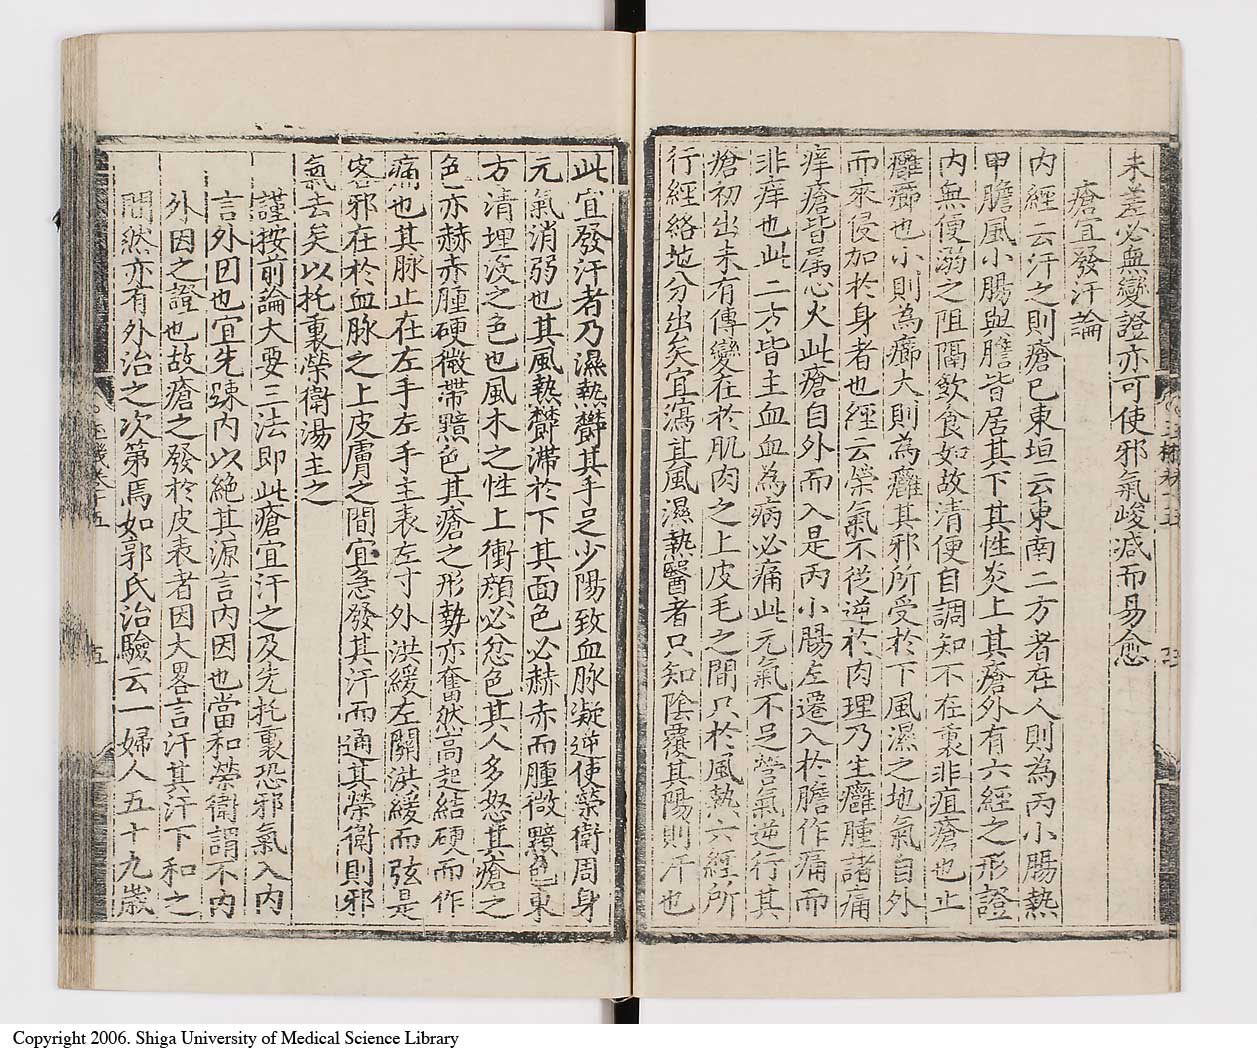 未差必無變證亦可使邪氣峻减而易愈
瘡宜發汗論
內經云汗之則瘡已東垣云東南二方者在人則為丙小腸熱
甲膽風小腸與膽皆居其下其性炎上其瘡外有六經之形證
內無便溺之阻隔飲食如故清便自調知不在裏非疽瘡也止
癰癤也小則為癤大則為癰其邪所受於下風濕之地氣自外
而來侵加於身者也經云榮氣不從逆於肉理乃生癰腫諸痛
痒瘡皆属心火此瘡自外而入是丙小腸左遷入於膽作痛而
非痒也此二方皆主血血為病必痛此元氣不足營氣逆行其
瘡初出未有傳變在於肌肉之上皮毛之間只於風熱六經所
行經絡地分出矣宜瀉其風濕熱醫者只知陰覆其陽則汗也
此宜發汗者乃濕熱欝其手足少陽致血脉凝逆使榮衛周身
元氣消弱也其風熱欝滞於下其面色必赫赤而腫微黯色東
方清埋没之色也風木之性上衝顔必忿色其人多怒其瘡之
色亦赫赤腫硬微帶黯色其瘡之形勢亦奮然高起結硬而作
痛也其脉止在左手左手主表左寸外洪緩左關洪緩而弦是
客邪在於血脉之上皮膚之間宜急發其汗而通其榮衛則邪
氣去矣以托裏榮衛湯主之
謹按前論大要三法即此瘡宜汗之及先托裏恐邪氣入內
言外因也宜先踈內以絶其源言內因也當和榮衛謂不內
外因之證也故瘡之發於皮表者因大畧言汗其汗下和之
間然亦有外治之次第焉如郭氏治驗云一婦人五十九歲
五